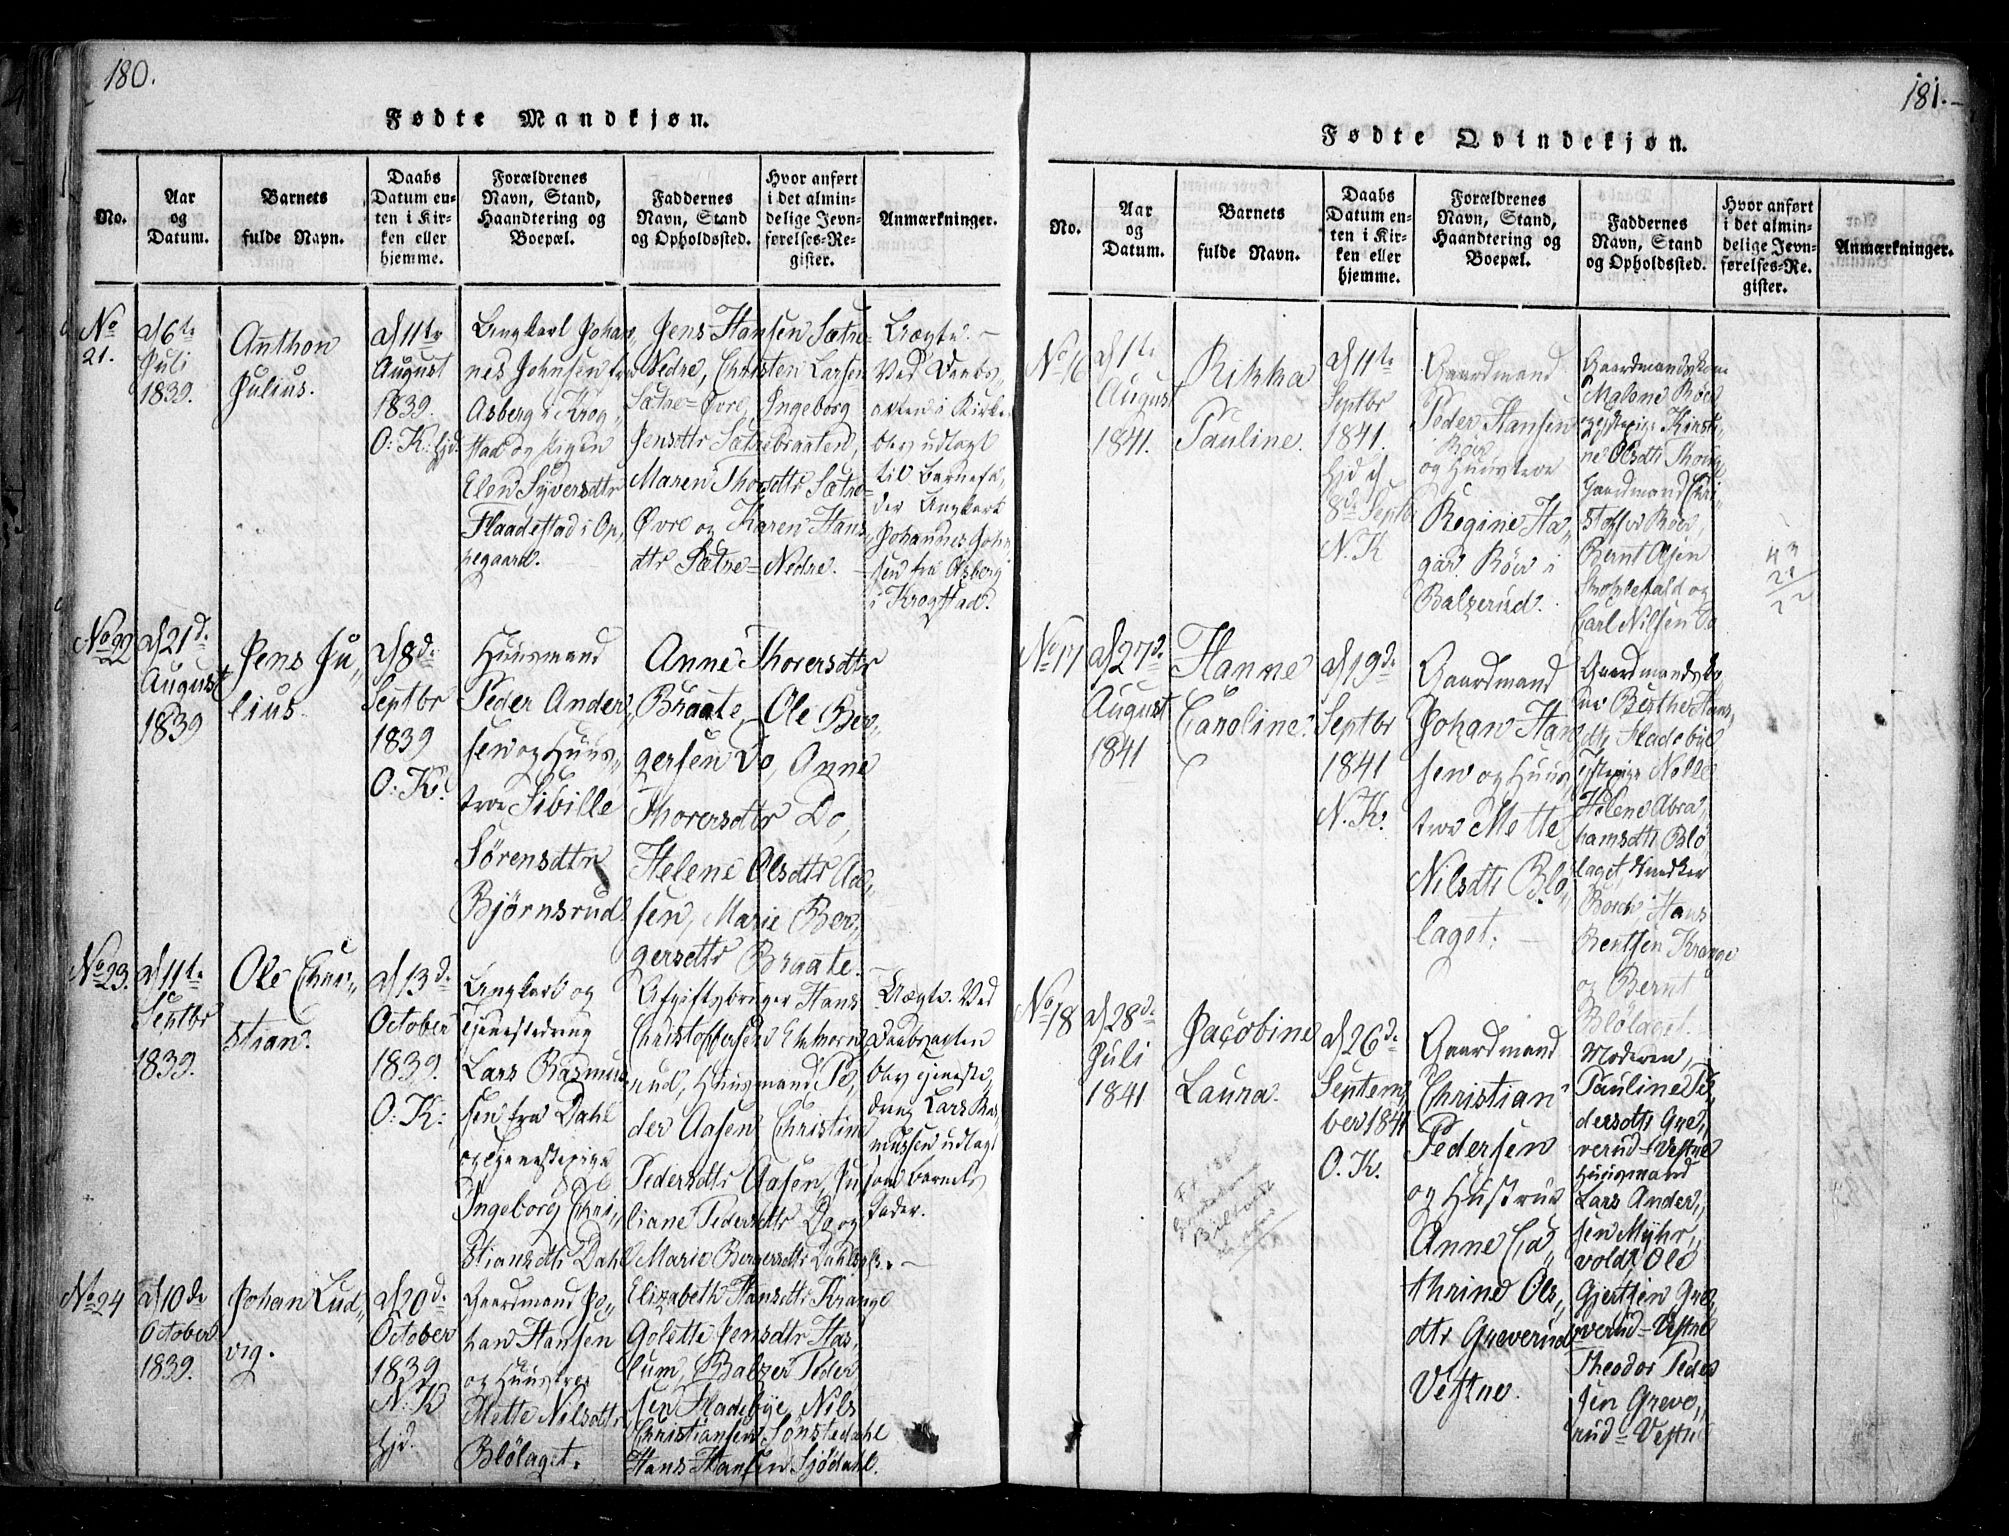 180.
Fødte Mandkjøn.
No.
Aar
og
Datum.
Barnets
fulde Navn.
Daabs
Datum en-
ten i Kir-
ken eller
hjemme.
Forældrenes
Navn, Stand,
Haandtering og
Boepæl.
Faddernes
Navn, Stand
og Opholdssted.
Hvor anført
i det almin-
delige Jevn-
førelses-Re-
gister.
Anmærkninger.
No
21.
d 6te
Juli
1839.
Anthon
Julius.
d 11te
August
1839.
O: K: hjd.
Ungkarl Johan„
nes Johnsen fra
Asberg i Krog„
stad og Pigen
Elen Syversdtr
Flaadestad i Op„
pegaard.
Jens Hansen Sætre=
Nedre, Christen Larsen
Sætre=Øvre Ingeborg
Jensdtr Sætrebraaten,
Maren Thorsdtr Sætre=
Øvre og Karen Hans„
dtr Sætre=Nedre.
Uægte.
Ved Daabs„
acten i Kirke
blev udlagt
til Barnefa„
der Ungkarl
Johannes John
sen fra Asberg
i Krogstad.
No 22
d 21d.
August
1839
Jens Ju„
lius.
d 8d.
Septbr
1839
O: K:
Huusmand
Peder Ander„
sen og Huus„
troe Sibille
Sørensdtr
Bjørnsrud
Anne Thorersdtr
Braate, Ole Ber„
gersen Do, Anne
Thorersdtr Do,
Helene Olsdtr Aa„
sen, Marie Ber„
gersdtr Braate.
No 23.
d 11te
Septbr
1839.
Ole Chri„
stian.
d 13d.
October
1839.
O: K:
Ungkarl og
Tjenestedreng
Lars Rasmus
sen fra Dahl
og Tjenestepige
Ingeborg Chri„
stiansdtr Dahl
Afgiftsbruger Hans
Christoffersen Ekhorn
rud, Huusmand Pe„
der Aasen Christine
Pedersdtr Aasen, Ju„
liane Pedersdtr Do og
Marie Bergersdtr Dahlsplr.
Uægte. Ved
Daabsacten
blev Tjeneste
dreng Lars Ras„
mussen udlagt
som Barnets
Fader.
No 24
d 10d.
October
1839.
Johan Lud„
vig.
d 20d.
October
1839
N: K
hjd.
Gaardmand Jo„
han Hansen
og Huustroe
Mette Nilsdtr
Blølaget.
Elizabeth Hansdtr Krange
Golette Jensdtr Has„
lum, Balzer Peder
sen Fladebye, Nils
Christiansen Sønstedahl
Hans Hansen Sjødahl.
181.
Fødte Qvindekjøn.
No.
Aar
og
Datum.
Barnets
fulde Navn.
Daabs
Datum en-
ten i Kir-
ken eller
hjemme.
Forældrenes
Navn, Stand,
Haandtering og
Boepæl.
Faddernes
Navn, Stand
og Opholdssted.
Hvor anført
i det almin-
delige Jevn-
førelses-Re-
gister.
Anmærkninger.
No 16
d 1te
August
1841.
Rikka
Pauline.
d 11te
Septbr
1841.
hjd d
8de Septb
N. K
Gaardmand
Peder Hansen
Röer
og Huustroe
Regine Ha„
gar Röer i
Balzerud.
Gaardmandskone
Malene Röer
Kirsti„
ne Olsdtr
Gaardmand Chri„
stoffer Röer,
Bernt Olsen
og
Carl Nilsen Do
No 17
d 27d.
August
1841
Hanne
Caroline.
d 19d.
Septbr
1841
N. K.
Gaardmand
Johan Han
sen og Huus„
troe Mette
Nilsdtr Blø„
laget.
Berthe Hans„
dtr Fladebye
Helene Abra„
hamsdtr Blø„
laget,
Hans
Bentsen Krange
og Bernt
Blølaget.
No 18
d 28d.
Juli
1841
Jacobine
Laura.
d 26d.
Septem„
ber 1841
O. K.
Gaardmand
Christian
Pedersen
og Hustrue
Anne Ca„
thrine Ols„
dtr Greverud
Vestre.
Moderen,
Pauline Pe„
dersdtr Gre„
verud=Vestre
Huusmand
Lars Ander„
sen Myhr„
vold, Ole
Gjertsen Gre„
verud=Vestre
Theodor Peder
sen Greve„
rud=Vestre